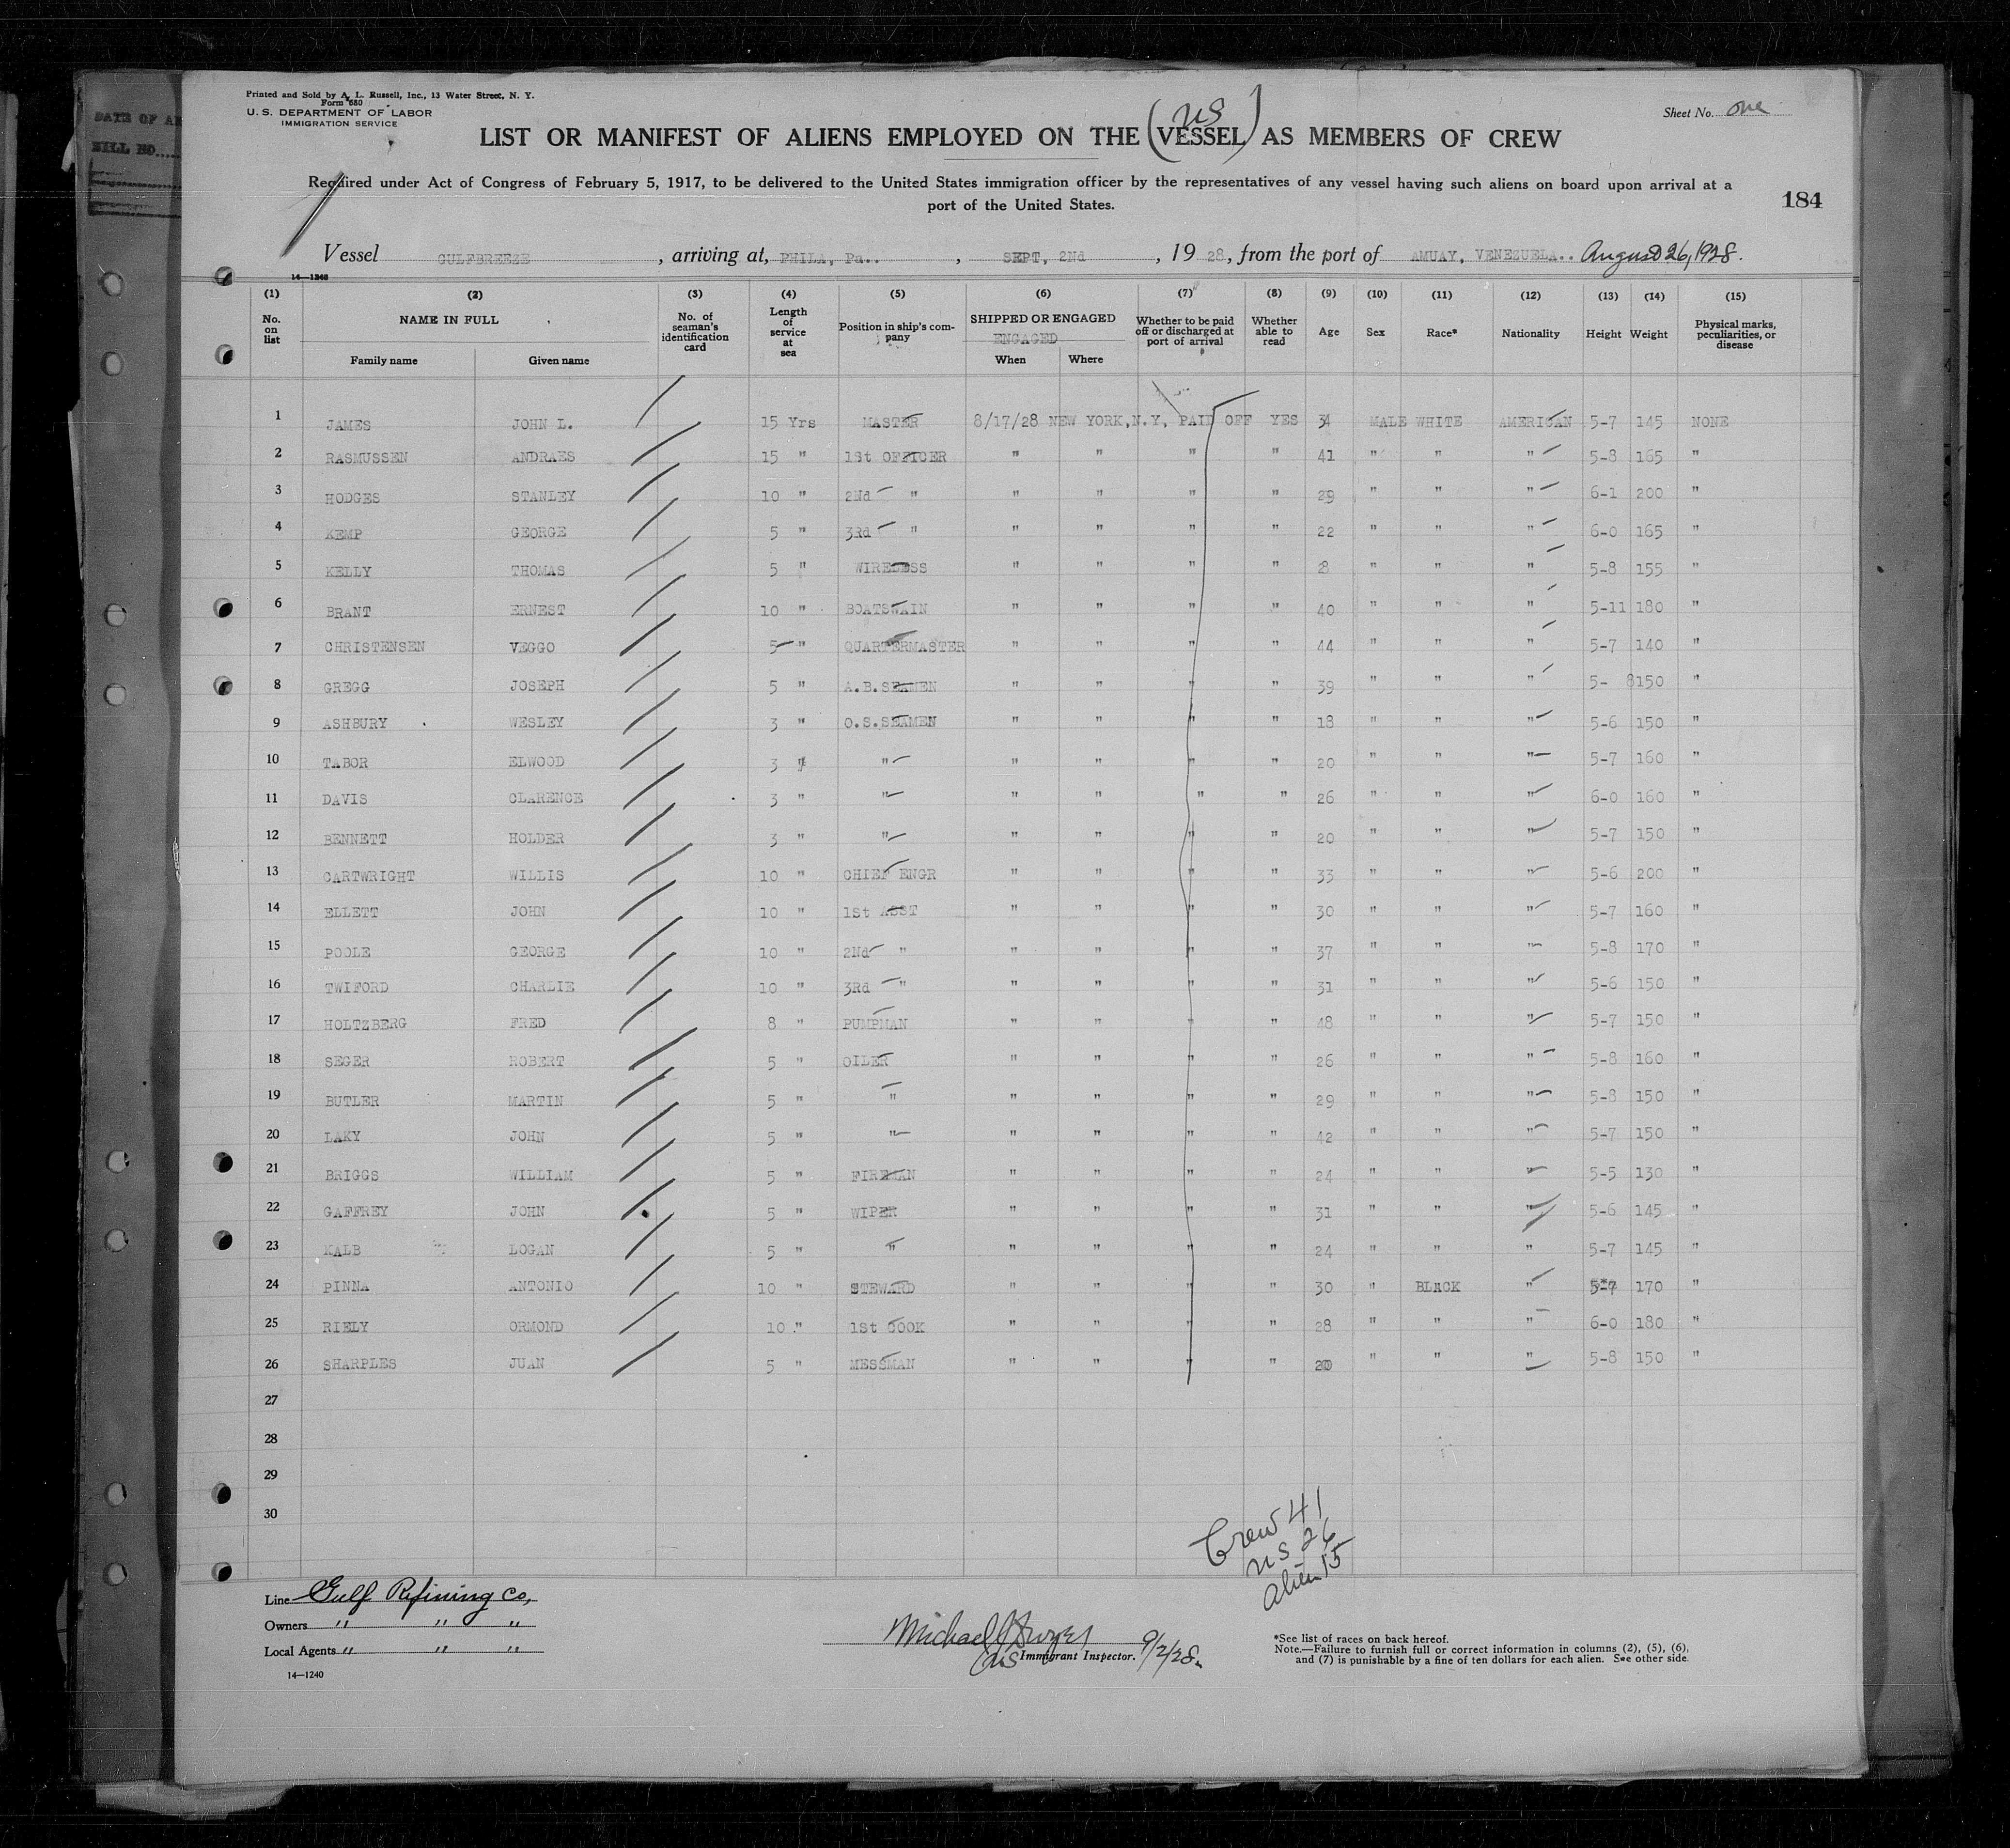 DATE OF
BILL NO.....
Printed and Sold by A. L. Russell, Inc., 13 Water Street, N. Y.
Form 680
U. S. DEPARTMENT OF LABOR
IMMIGRATION SERVICE
Sheet No. one
US
LIST OR MANIFEST OF ALIENS EMPLOYED ON THE (VESSEL) AS MEMBERS OF CREW
Required under Act of Congress of February 5, 1917, to be delivered to the United States immigration officer by the representatives of any vessel having such aliens on board upon arrival at a
port of the United States.
184
Vessel GULFBREEZE , arriving at, PHILA, Pa.. , SEPT, 2Nd , 19 28, from the port of AMUAY, VENEZUELA.. August 26, 1928.
14—1240
(1) (2) (3) (4) (5) (6) (7) (8) (9) (10) (11) (12) (13) (14) (15)
No. on list NAME IN FULL Family name Given name No. of seaman's identification card Length of service at sea Position in ship's company SHIPPED OR ENGAGED ENGAGED When Where Whether to be paid off or discharged at port of arrival Whether able to read Age Sex Race* Nationality Height Weight Physical marks, peculiarities, or disease
1 JAMES JOHN L. 15 Yrs MASTER 8/17/28 NEW YORK,N.Y, PAID OFF YES 34 MALE WHITE AMERICAN 5-7 145 NONE
2 RASMUSSEN ANDRAES 15 " 1St OFFICER " " " " 41 " " " 5-8 165 "
3 HODGES STANLEY 10 " 2Nd " " " " " 29 " " " 6-1 200 "
4 KEMP GEORGE 5 " 3Rd " " " " " 22 " " " 6-0 165 "
5 KELLY THOMAS 5 " WIRELESS " " " " 8 " " " 5-8 155 "
6 BRANT ERNEST 10 " BOATSWAIN " " " " 40 " " " 5-11 180 "
7 CHRISTENSEN VEGGO 5 " QUARTERMASTER " " " " 44 " " " 5-7 140 "
8 GREGG JOSEPH 5 " A.B.SEAMEN " " " " 39 " " " 5- 8150 "
9 ASHBURY WESLEY 3 " O.S.SEAMEN " " " " 18 " " " 5-6 150 "
10 TABOR ELWOOD 3 " " " " " " 20 " " " 5-7 160 "
11 DAVIS CLARENCE 3 " " " " " " 26 " " " 6-0 160 "
12 BENNETT HOLDER 3 " " " " " " 20 " " " 5-7 150 "
13 CARTWRIGHT WILLIS 10 " CHIEF ENGR " " " " 33 " " " 5-6 200 "
14 ELLETT JOHN 10 " 1St ASST " " " " 30 " " " 5-7 160 "
15 POOLE GEORGE 10 " 2Nd " " " " " 37 " " " 5-8 170 "
16 TWIFORD CHARLIE 10 " 3Rd " " " " " 31 " " " 5-6 150 "
17 HOLTZBERG FRED 8 " PUMPMAN " " " " 48 " " " 5-7 150 "
18 SEGER ROBERT 5 " OILER " " " " 26 " " " 5-8 160 "
19 BUTLER MARTIN 5 " " " " " " 29 " " " 5-8 150 "
20 LAKY JOHN 5 " " " " " " 42 " " " 5-7 150 "
21 BRIGGS WILLIAM 5 " FIREMAN " " " " 24 " " " 5-5 130 "
22 GAFFREY JOHN 5 " WIPER " " " " 31 " " " 5-6 145 "
23 KALB LOGAN 5 " " " " " " 24 " " " 5-7 145 "
24 PINNA ANTONIO 10 " STEWARD " " " " 30 " BLACK " 5-7 170 "
25 RIELY ORMOND 10 " 1St COOK " " " " 28 " " " 6-0 180 "
26 SHARPLES JUAN 5 " MESSMAN " " " " 20 " " " 5-8 150 "
27
28
29
30
Crew 41
US 26
Alien 15
Line Gulf Refining Co,
Owners " " "
Local Agents " " "
14—1240
Michael
US Immigrant Inspector. 9/2/28.
*See list of races on back hereof.
Note.—Failure to furnish full or correct information in columns (2), (5), (6),
and (7) is punishable by a fine of ten dollars for each alien. See other side.